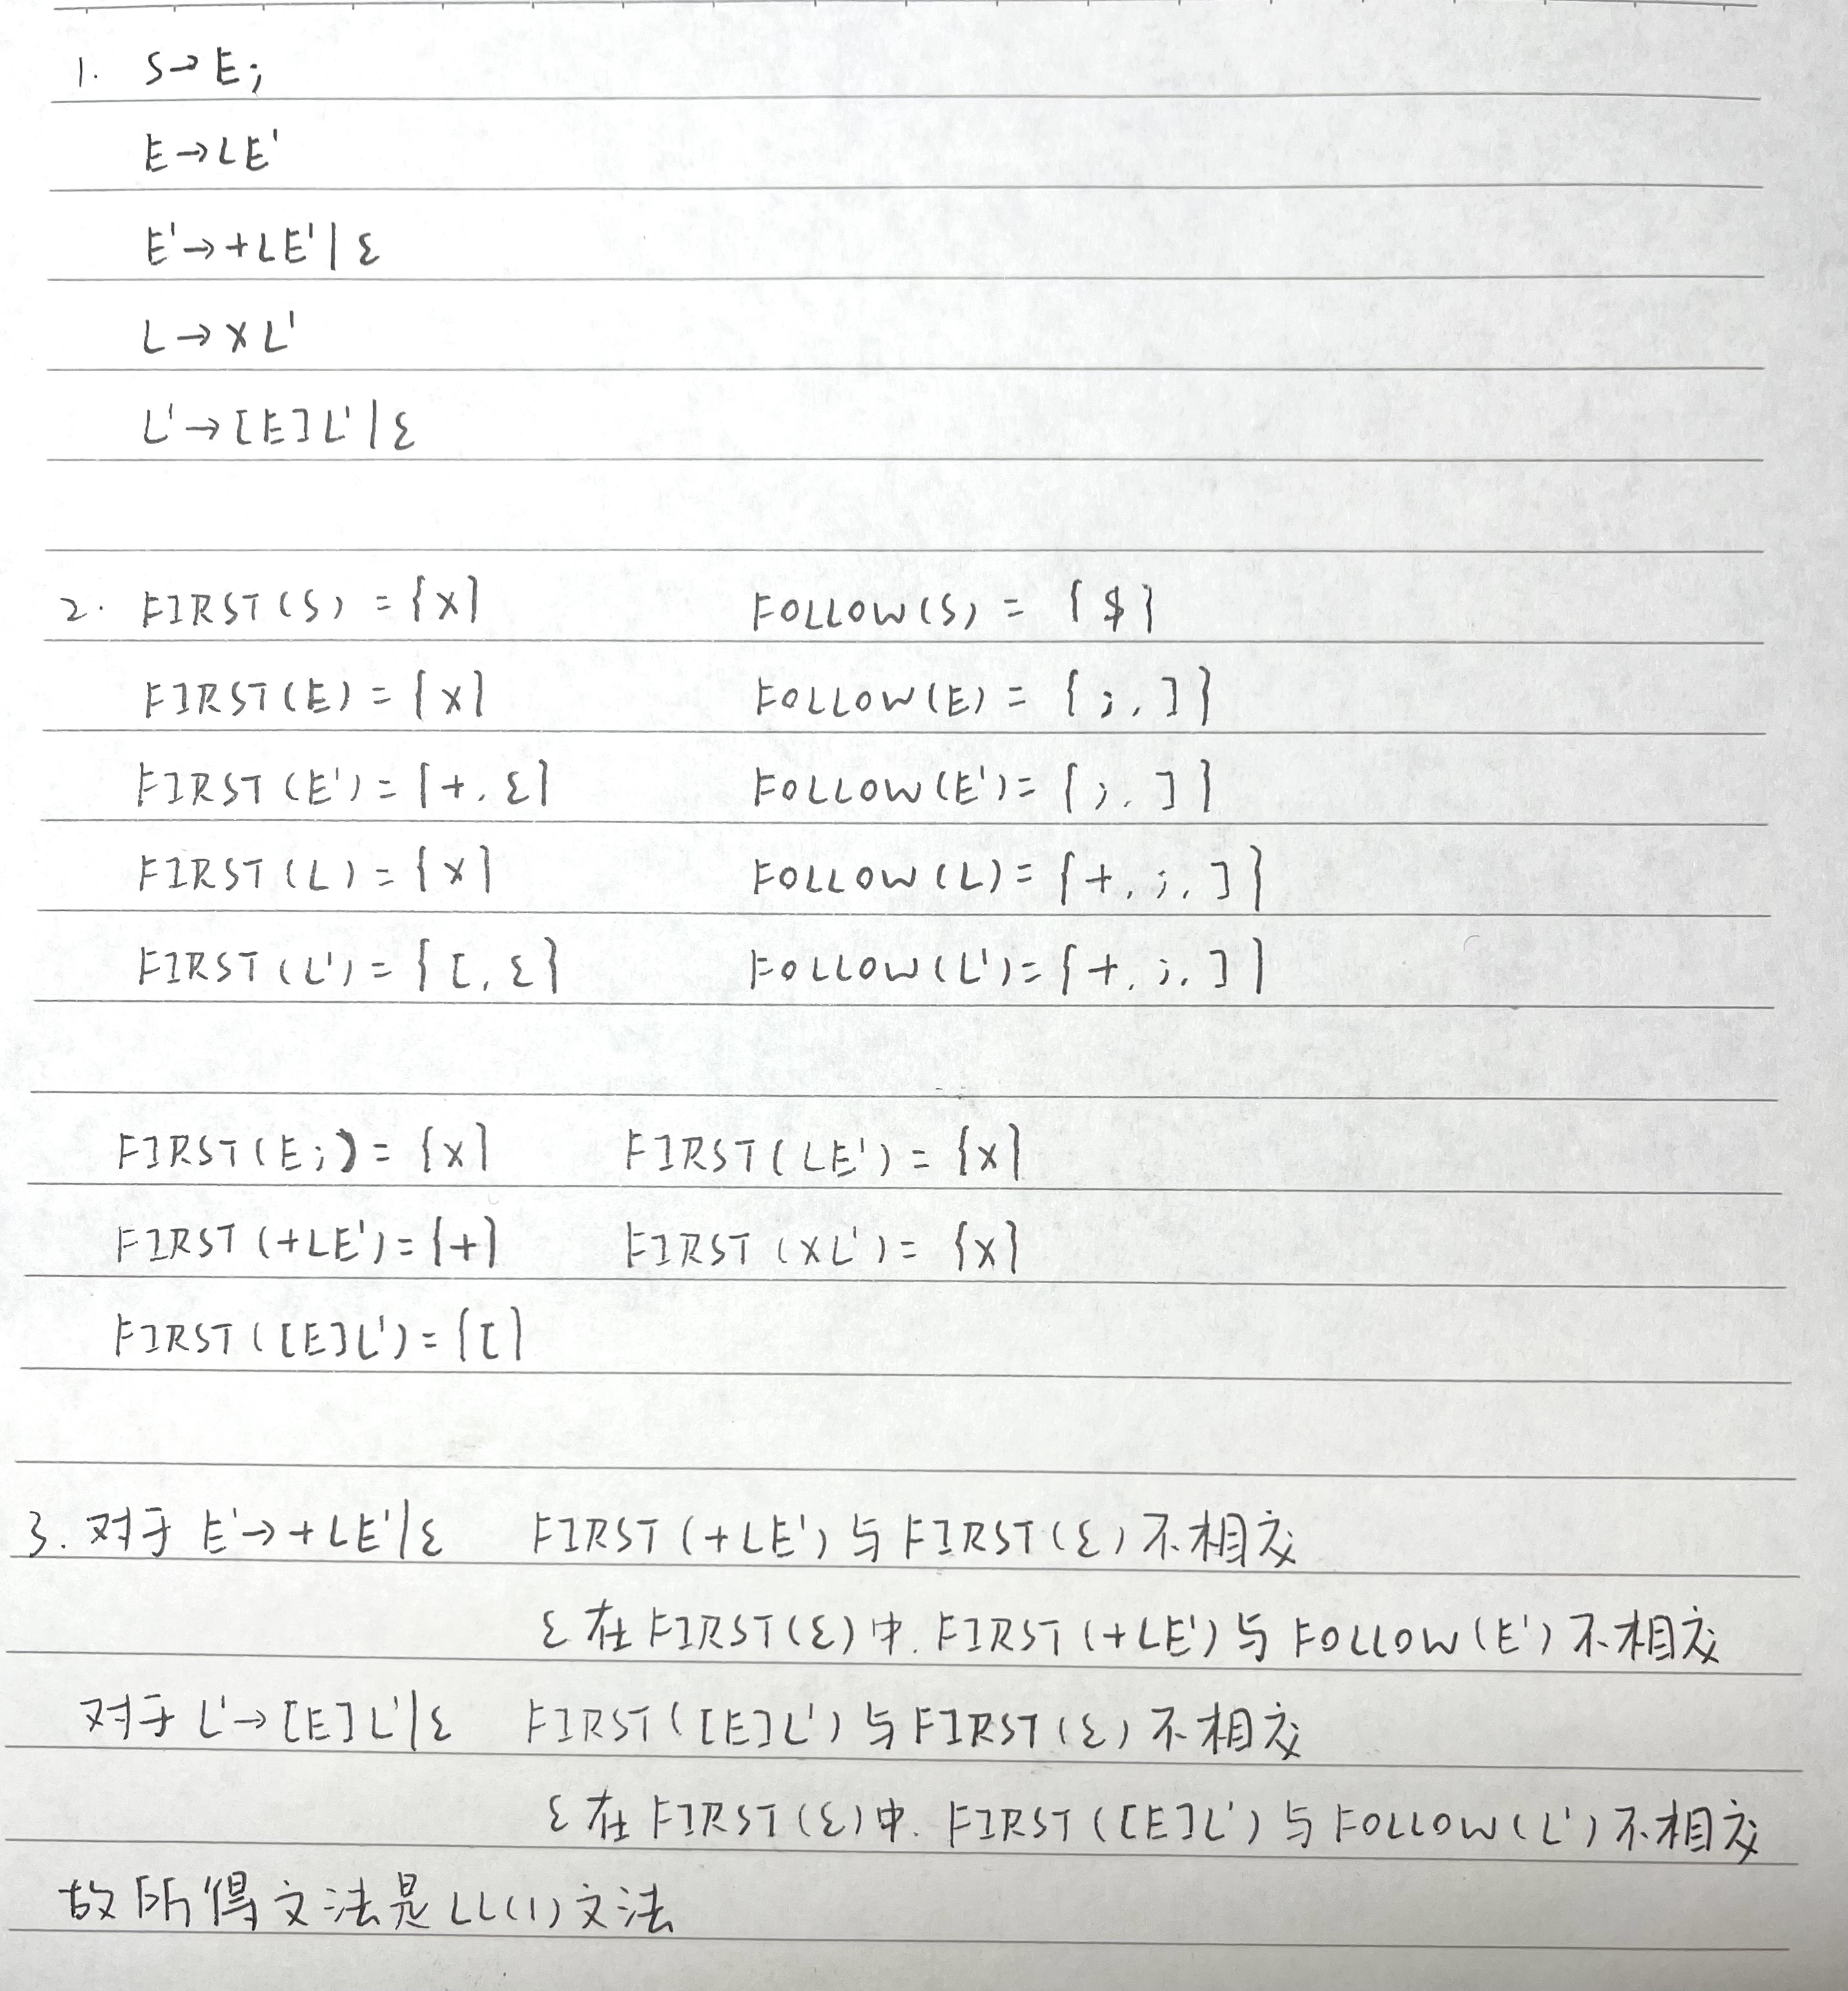 1. S→E;
E→LE'
E'→+LE'|ε
L→xL'
L'→[E]L'|ε
2. FIRST(S) = {x} FOLLOW(S) = {$}
FIRST(E) = {x} FOLLOW(E) = {;, ]}
FIRST(E') = {+, ε} FOLLOW(E') = {;, ]}
FIRST(L) = {x} FOLLOW(L) = {+, ;, ]}
FIRST(L') = {[, ε} FOLLOW(L') = {+, ;, ]}
FIRST(E;) = {x} FIRST(LE') = {x}
FIRST(+LE') = {+} FIRST(xL') = {x}
FIRST([E]L') = {[}
3. 对于 E'→+LE'|ε FIRST(+LE') 与 FIRST(ε) 不相交
ε 在 FIRST(ε) 中. FIRST(+LE') 与 FOLLOW(E') 不相交
对于 L'→[E]L'|ε FIRST([E]L') 与 FIRST(ε) 不相交
ε 在 FIRST(ε) 中. FIRST([E]L') 与 FOLLOW(L') 不相交
故所得文法是 LL(1) 文法